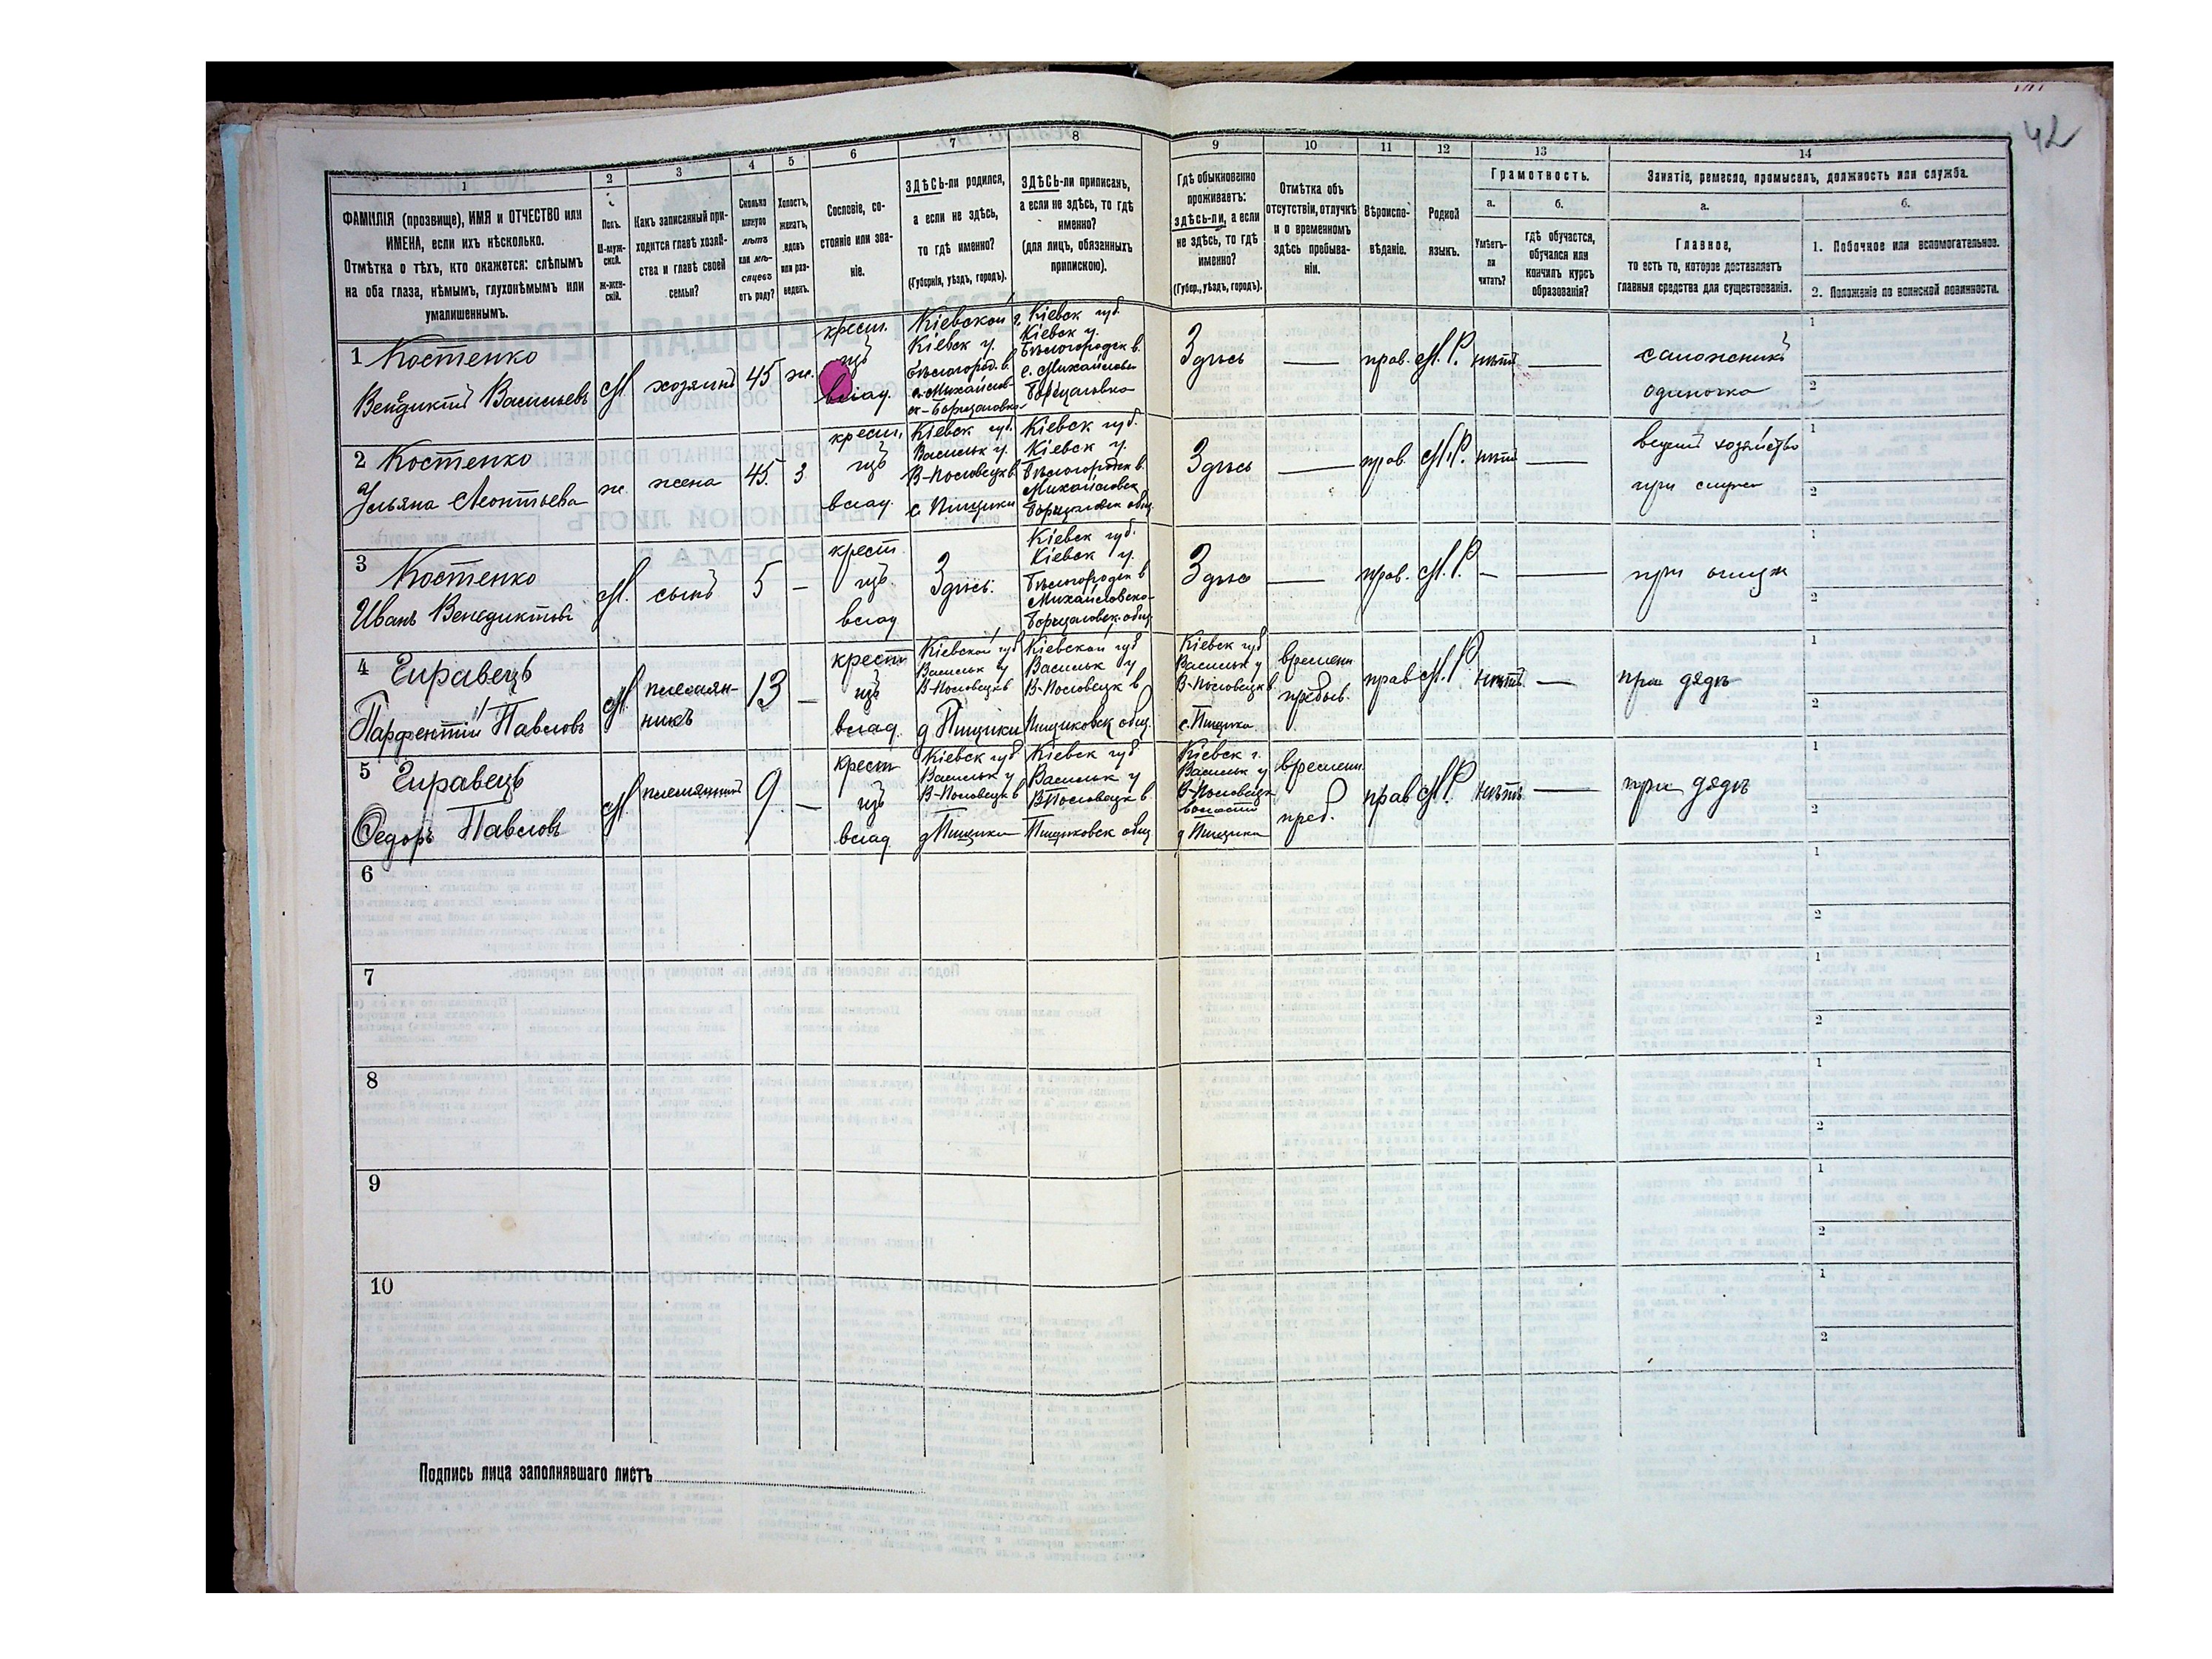 42
1
2
3
4
5
6
7
8
9
10
11
12
13
14
ФАМИЛІЯ (прозвище), ИМЯ и ОТЧЕСТВО или
ИМЕНА, если ихъ нѣсколько.
Отмѣтка о тѣхъ, кто окажется: слѣпымъ
на оба глаза, нѣмымъ, глухонѣмымъ или
умалишеннымъ.
Полъ.
М-муж-
ской.
ж-жен-
скій.
Какъ записанный при-
ходится главѣ хозяй-
ства и главѣ своей
семьи?
Сколько
минуло
лѣтъ
или мѣ-
сяцевъ
отъ роду?
Холостъ,
женатъ,
вдовъ
или раз-
веденъ.
Сословіе, со-
стояніе или зва-
ніе.
ЗДѢСЬ-ли родился,
а если не здѣсь,
то гдѣ именно?
(Губернія, уѣздъ, городъ).
ЗДѢСЬ-ли приписанъ,
а если не здѣсь, то гдѣ
именно?
(для лицъ, обязанныхъ
припискою).
Гдѣ обыкновенно
проживаетъ:
здѣсь-ли, а если
не здѣсь, то гдѣ
именно?
(Губер., уѣздъ, городъ).
Отмѣтка объ
отсутствіи, отлучкѣ
и о временномъ
здѣсь пребыва-
ніи.
Вѣроиспо-
вѣданіе.
Родной
языкъ.
Грамотность.
а.
б.
Умѣетъ-
ли
читать?
Гдѣ обучается,
обучался или
кончилъ курсъ
образованія?
Занятіе, ремесло, промыселъ, должность или служба.
а.
б.
Главное,
то есть то, которое доставляетъ
главныя средства для существованія.
1. Побочное или вспомогательное.
2. Положеніе по воинской повинности.
1 Костенко
Венедиктъ Васильевъ
М
хозяинъ
45
ж.
крест.
изъ
влад.
Кіевской г.
Кіевск у.
Бѣлогород. в.
с. Михайлов-
ск-Борщаговка
Кіевск губ.
Кіевск у.
Бѣлогородск в.
с. Михайловск
Борщаговка
Здѣсь
—
прав.
М. Р.
нѣтъ
сапожникъ
одиночка
1
2
2 Костенко
Ульяна Леонтьева
ж
жена
45.
з.
крест.
изъ
влад.
Кіевск губ.
Васильк у.
В-Половецк в
с. Пищики
Кіевск губ.
Кіевск у.
Бѣлогородск в.
Михайловск
Борщаговск общ.
Здѣсь
—
прав.
М. Р.
нѣтъ
—
ведетъ хозяйство
1
2
3 Костенко
Иванъ Венедиктовъ
М.
сынъ
5
—
крест
изъ
влад
Здѣсь.
Кіевск губ.
Кіевск у.
Бѣлогородск в
Михайловско-
Борщаговск. общ
Здѣсь
—
прав.
М. Р.
—
—
при отцѣ
1
2
4
Парфентій Павловъ
М.
племян-
никъ
13
—
крест
изъ
влад.
Кіевской губ
Васильк у
В-Половецкв
д Пищики
Кіевской губ
Васильк у
В-Половецк в
Пищиковск общ.
Кіевск губ
Васильк у
В-Половецк в
с. Пищики
времени
пребыв.
прав
М. Р
нѣтъ
—
при дядѣ
1
2
5
Федоръ Павловъ
М
племянникъ
9
—
крест
изъ
влад
Кіевск губ
Васильк у
В-Половецк в
д Пищики
Кіевск губ
Васильк у
В-Половецк в.
Пищиковск общ
Кіевск г.
Васильк у
В-Половецк
волости
д Пищики
времени.
преб.
прав
М. Р.
нѣтъ
—
при дядѣ
1
2
6
1
2
7
1
2
8
1
2
9
1
2
10
1
2
Подпись лица заполнявшаго листъ